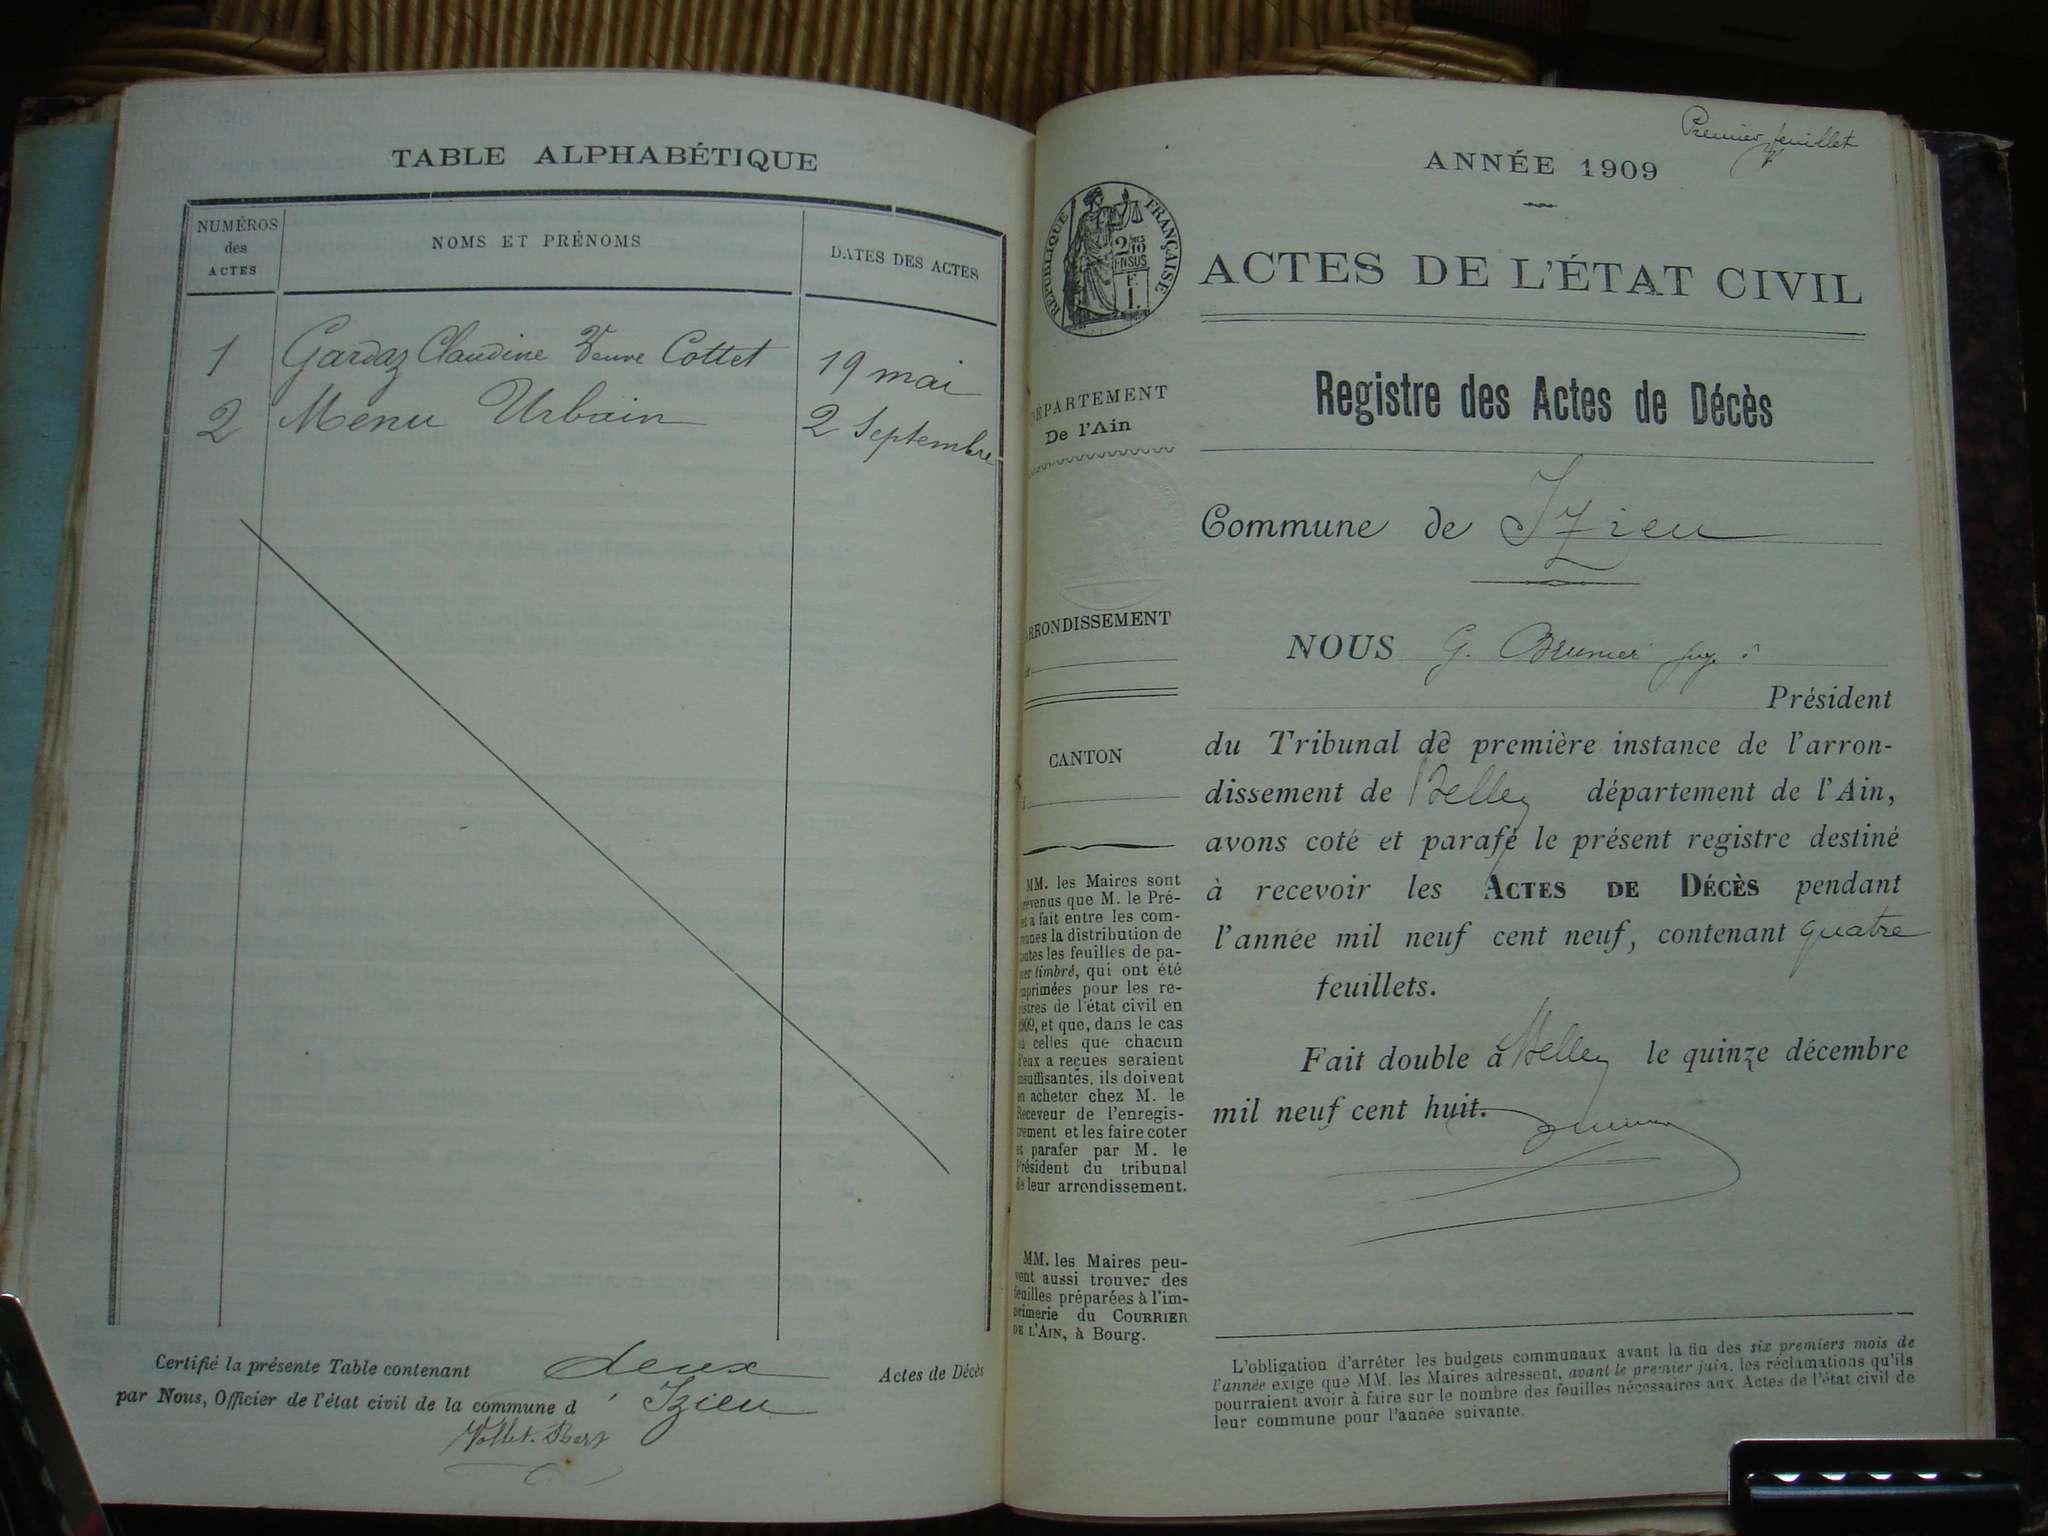 TABLE ALPHABÉTIQUE
NUMÉROS
des
ACTES
NOMS ET PRÉNOMS
DATES DES ACTES
1 Gardaz Claudine Veuve Cottet 19 mai
2 Menu Urbain 2 Septembre
Certifié la présente Table contenant deux Actes de Décès
par Nous, Officier de l'état civil de la commune d' Izieu
Premier feuillet
ANNÉE 1909
RÉPUBLIQUE FRANÇAISE
ACTES DE L'ÉTAT CIVIL
Registre des Actes de Décès
DÉPARTEMENT
De l'Ain
Commune de Izieu
ARRONDISSEMENT
CANTON
NOUS G. Brunier
Président
du Tribunal de première instance de l'arron-
dissement de Belley département de l'Ain,
avons coté et parafé le présent registre destiné
à recevoir les ACTES DE DÉCÈS pendant
l'année mil neuf cent neuf, contenant quatre
feuillets.
Fait double à Belley le quinze décembre
mil neuf cent huit.
MM. les Maires sont
prévenus que M. le Pré-
fet a fait entre les com-
munes la distribution de
toutes les feuilles de pa-
pier timbré, qui ont été
imprimées pour les re-
gistres de l'état civil en
1909, et que, dans le cas
où celles que chacun
d'eux a reçues seraient
insuffisantes, ils doivent
en acheter chez M. le
Receveur de l'enregis-
trement et les faire coter
et parafer par M. le
Président du tribunal
de leur arrondissement.
MM. les Maires peu-
vent aussi trouver des
feuilles préparées à l'im-
primerie du COURRIER
DE L'AIN, à Bourg.
L'obligation d'arrêter les budgets communaux avant la fin des six premiers mois de
l'année exige que MM. les Maires adressent, avant le premier juin, les réclamations qu'ils
pourraient avoir à faire sur le nombre des feuilles nécessaires aux Actes de l'état civil de
leur commune pour l'année suivante.